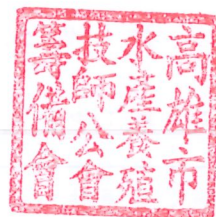 高雄市
水產養殖
技師公會
籌備會